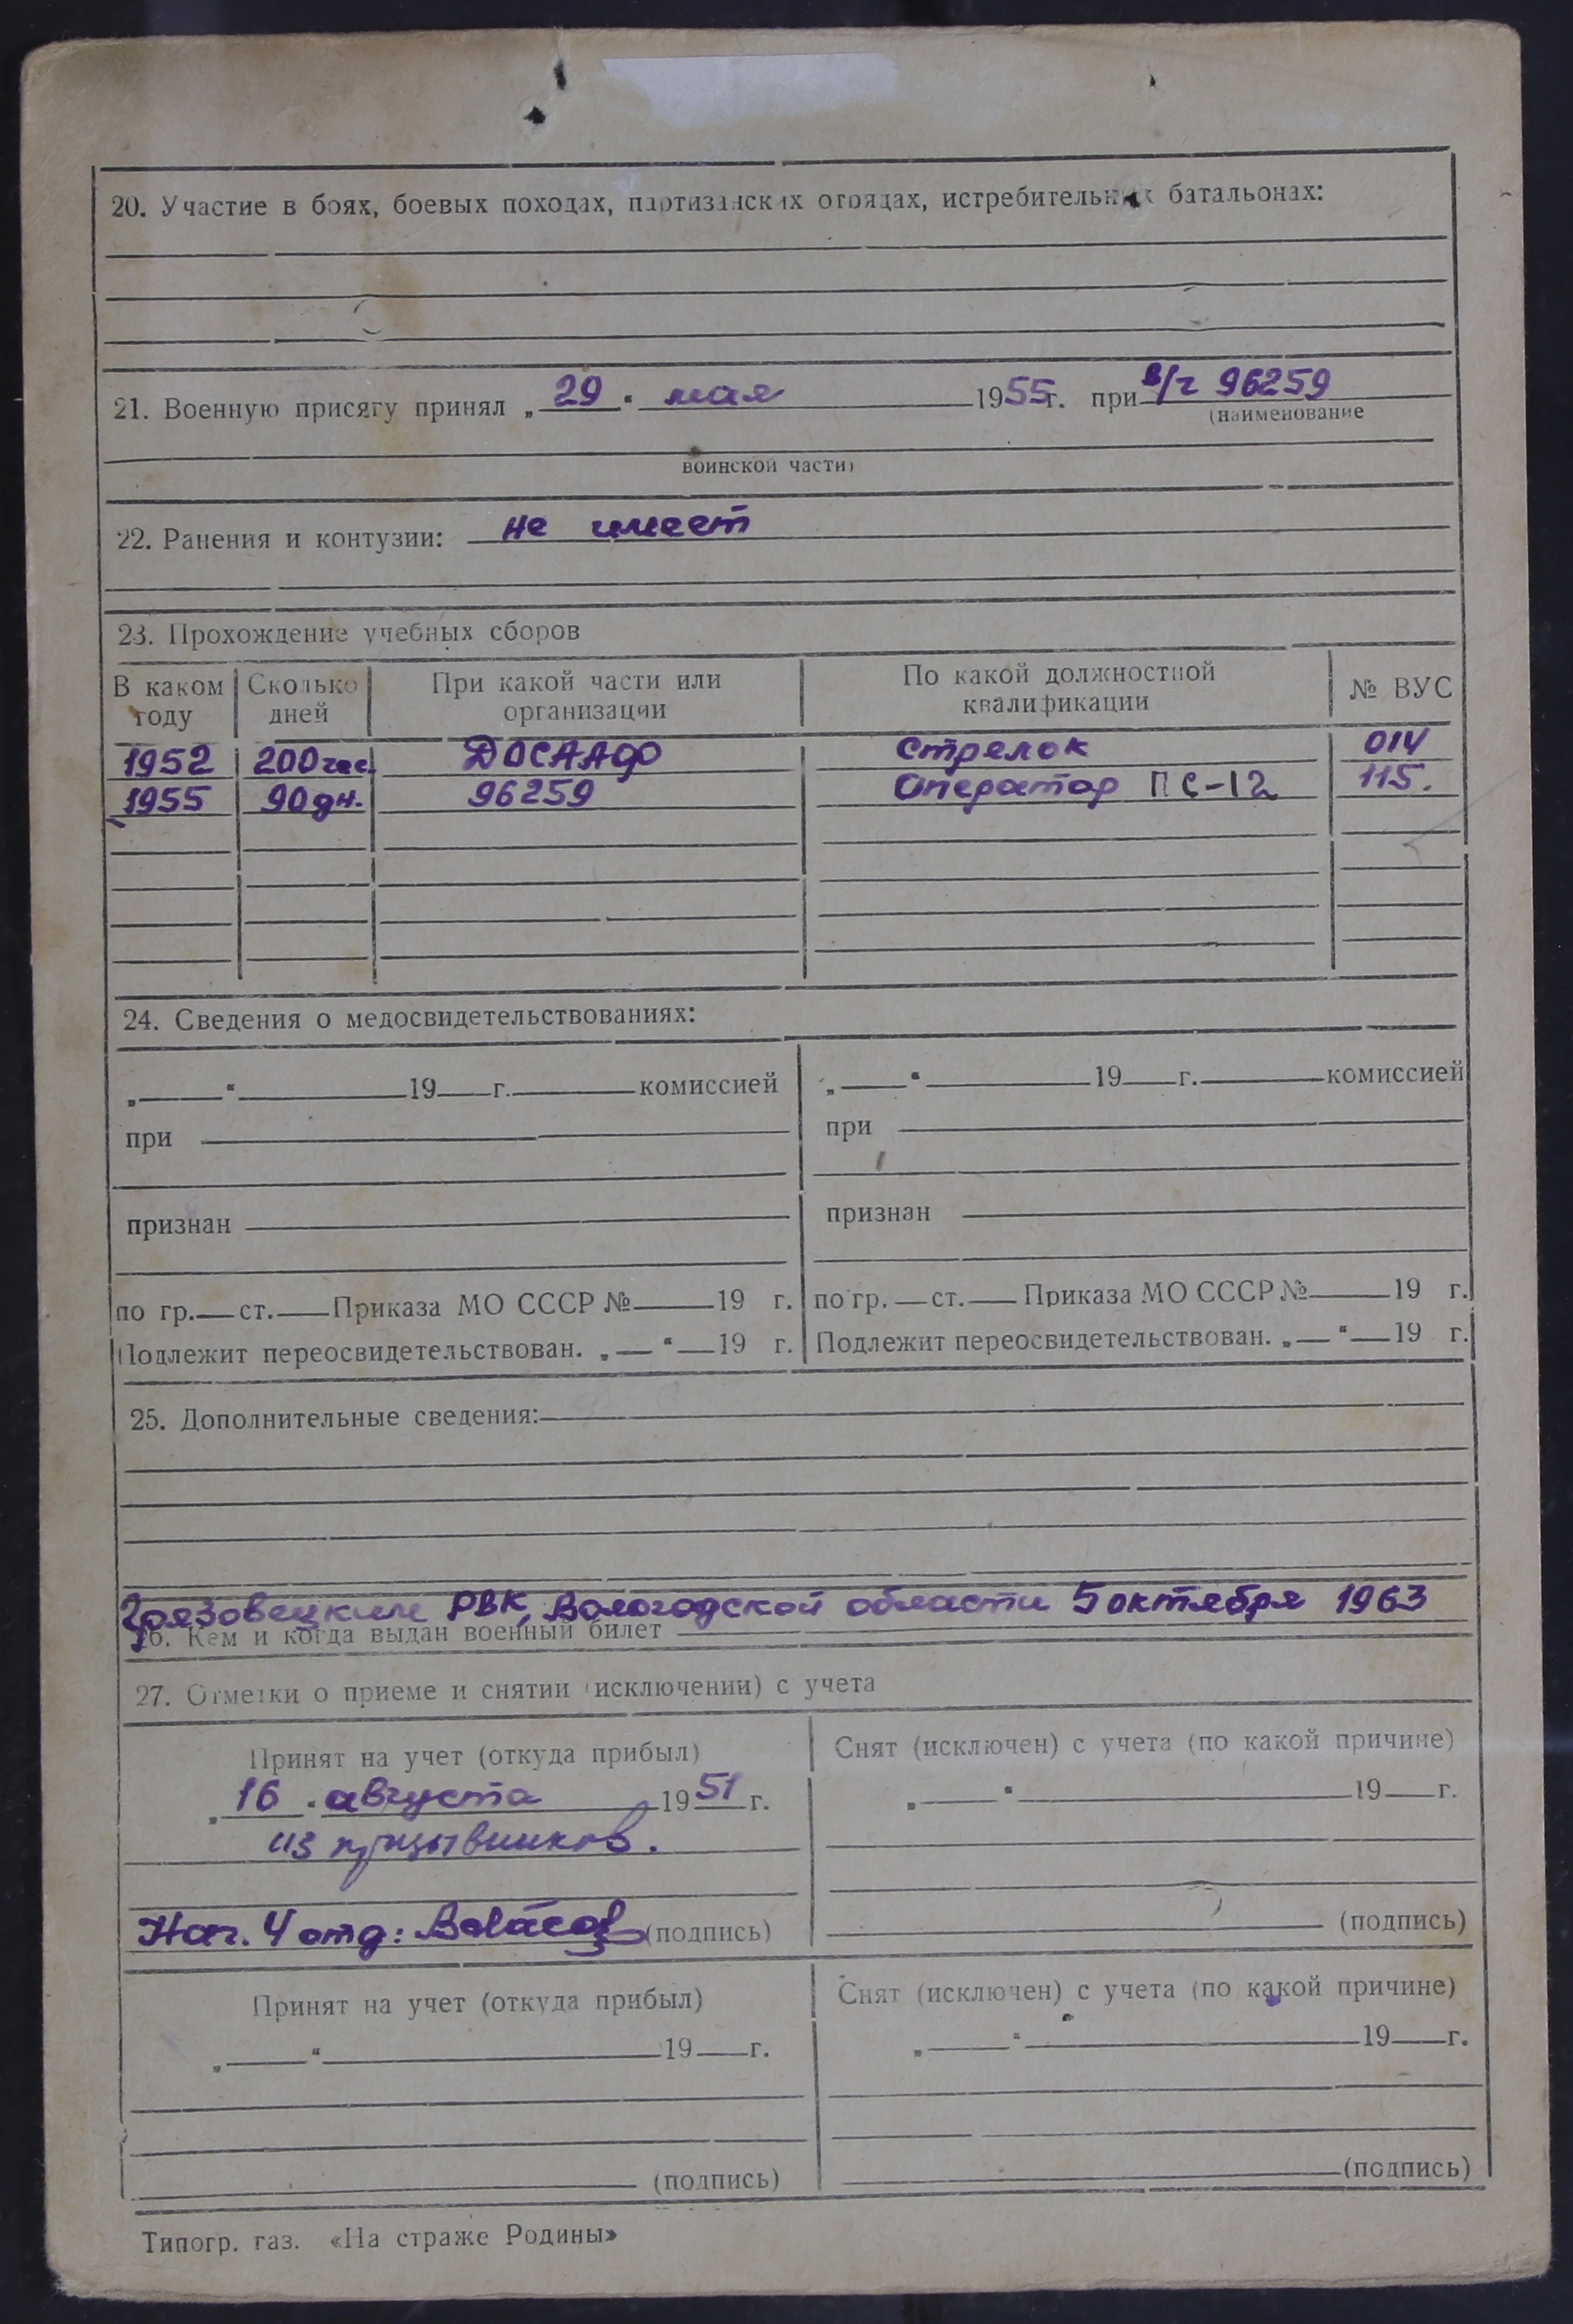 20. Участие в боях, боевых походах, партизанских отрядах, истребительных батальонах:
21. Военную присягу принял „ 29 " мая 1955г. при в/ч 96259
(наименование
воинской части)
22. Ранения и контузии: не имеет
23. Прохождение учебных сборов
В каком году | Сколько дней | При какой части или организации | По какой должностной квалификации | № ВУС
1952 | 200 час. | ДОСААФ | Стрелок | 014
1955 | 90 дн. | 96259 | Оператор ПС-12 | 115.
24. Сведения о медосвидетельствованиях:
„ " 19 г. комиссией | „ " 19 г. комиссией
при | при
признан | признан
по гр. ст. Приказа МО СССР № 19 г. | по гр. ст. Приказа МО СССР № 19 г.
Подлежит переосвидетельствован. „ " 19 г. | Подлежит переосвидетельствован. „ " 19 г.
25. Дополнительные сведения:
Грязовецким РВК, Вологодской области 5 октября 1963
26. Кем и когда выдан военный билет
27. Отметки о приеме и снятии (исключении) с учета
Принят на учет (откуда прибыл) | Снят (исключен) с учета (по какой причине)
„ 16 " августа 1951 г. | „ " 19 г.
из призывников.
Нач. 4 отд: (подпись) | (подпись)
Принят на учет (откуда прибыл) | Снят (исключен) с учета (по какой причине)
„ " 19 г. | „ " 19 г.
(подпись) | (подпись)
Типогр. газ. «На страже Родины»